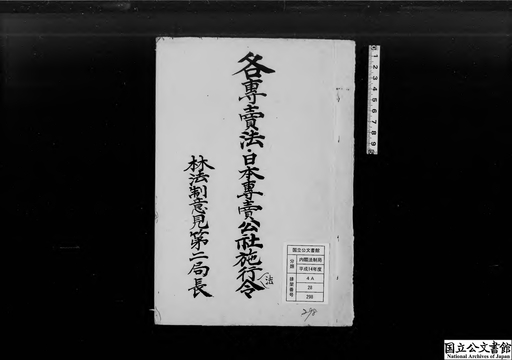 各専賣法・日本専賣公社施行令
法
林法制意見第二局長
国立公文書館
分類
内閣法制局
平成14年度
排架番号
4 A
28
298
298
0 1 2 3 4 5 6 7 8 9
国立公文書館
National Archives of Japan